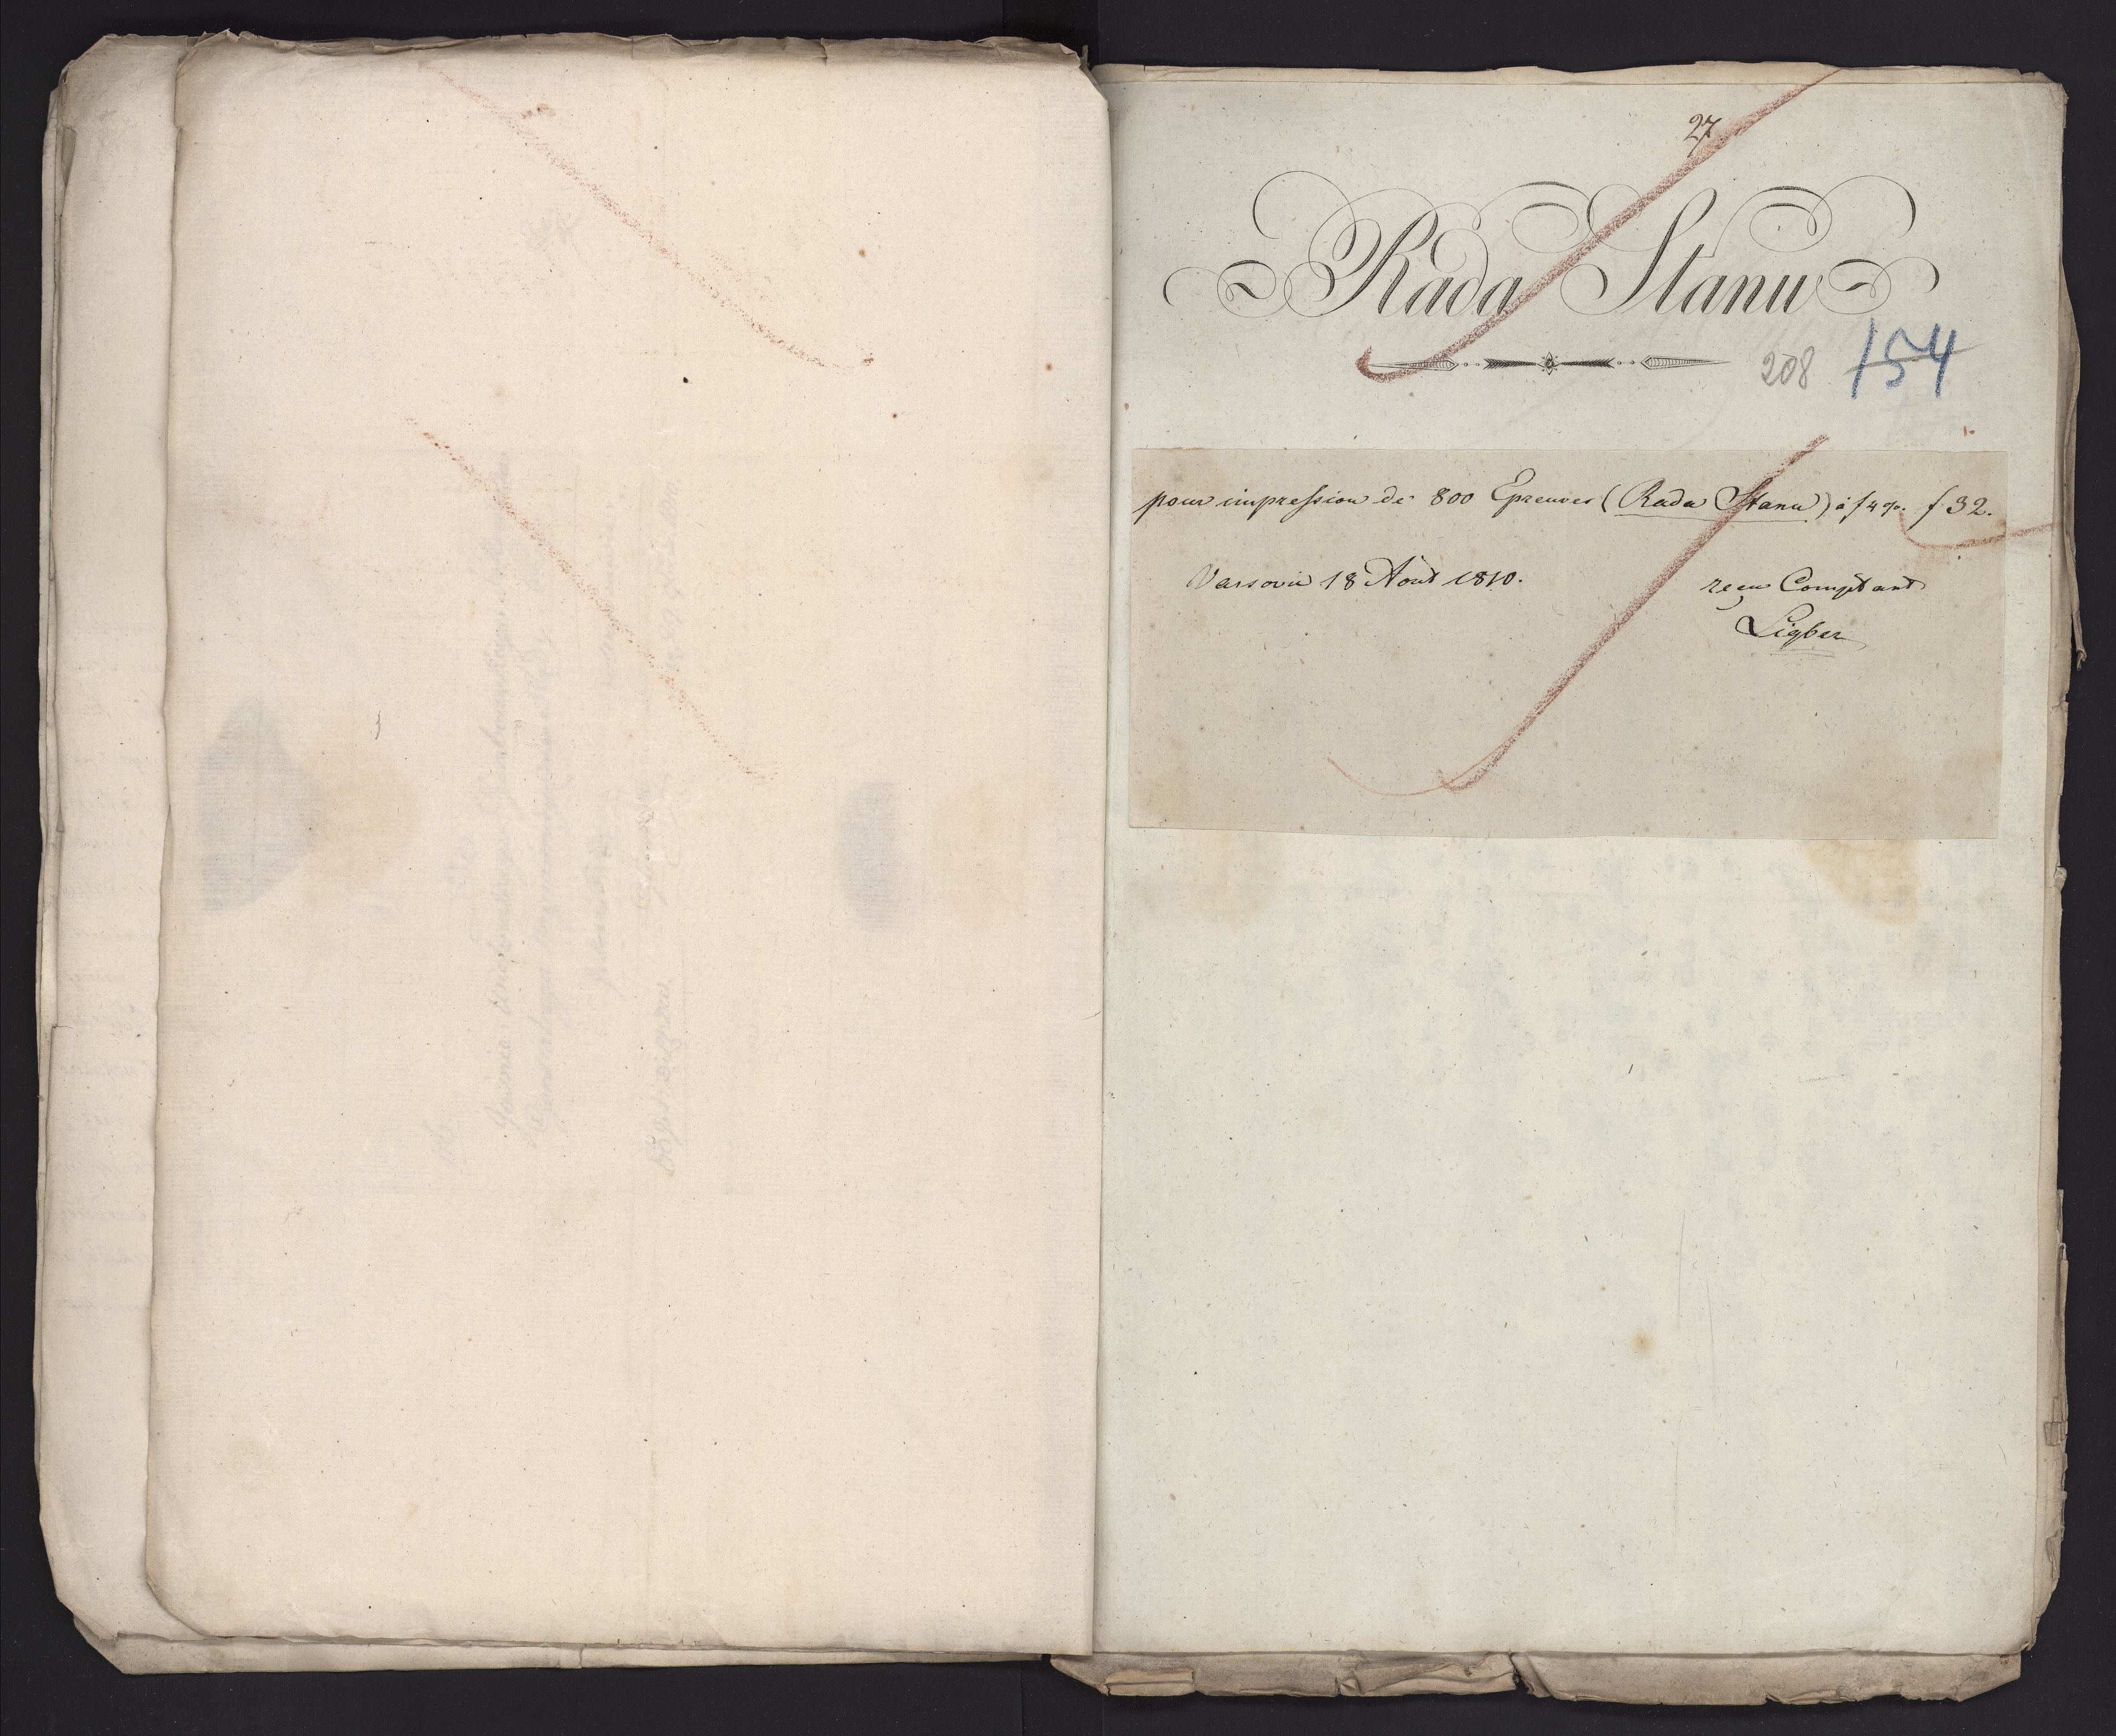 27
Rada Stanu
208 154
pour impression de 800 Epreuves (Rada Stanu) à f 4 %. f 32.
Varsovie 18 Août 1810. reçu Comptant
Ligber